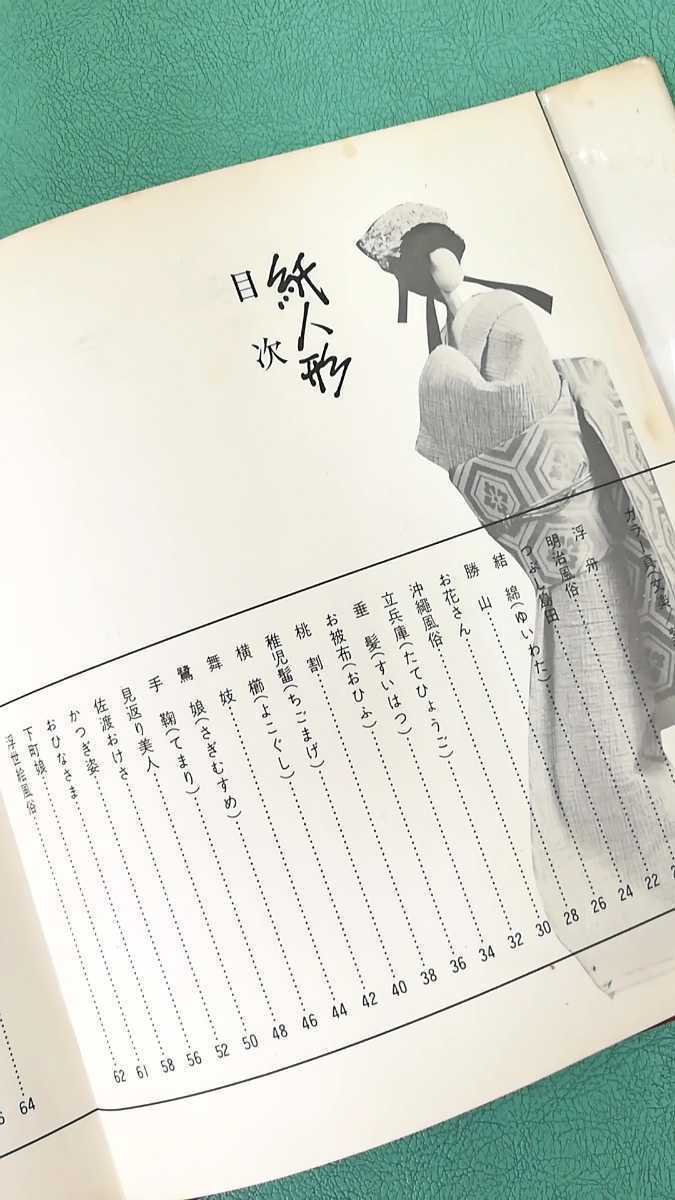 紙人形
目次
カラー写真(文楽
浮舟
明治風俗
つぶし島田 22
結綿(ゆいわた) 24
勝山 26
お花さん 28
沖繩風俗 30
立兵庫(たてひょうご) 32
垂髪(すいはつ) 34
お被布(おひふ) 36
桃割 38
稚児髷(ちごまげ) 40
横櫛(よこぐし) 42
舞妓 44
鷺娘(さぎむすめ) 46
手鞠(てまり) 48
見返り美人 50
佐渡おけさ 52
かつぎ姿 56
おひなさま 58
下町娘 61
浮世絵風俗 62
64